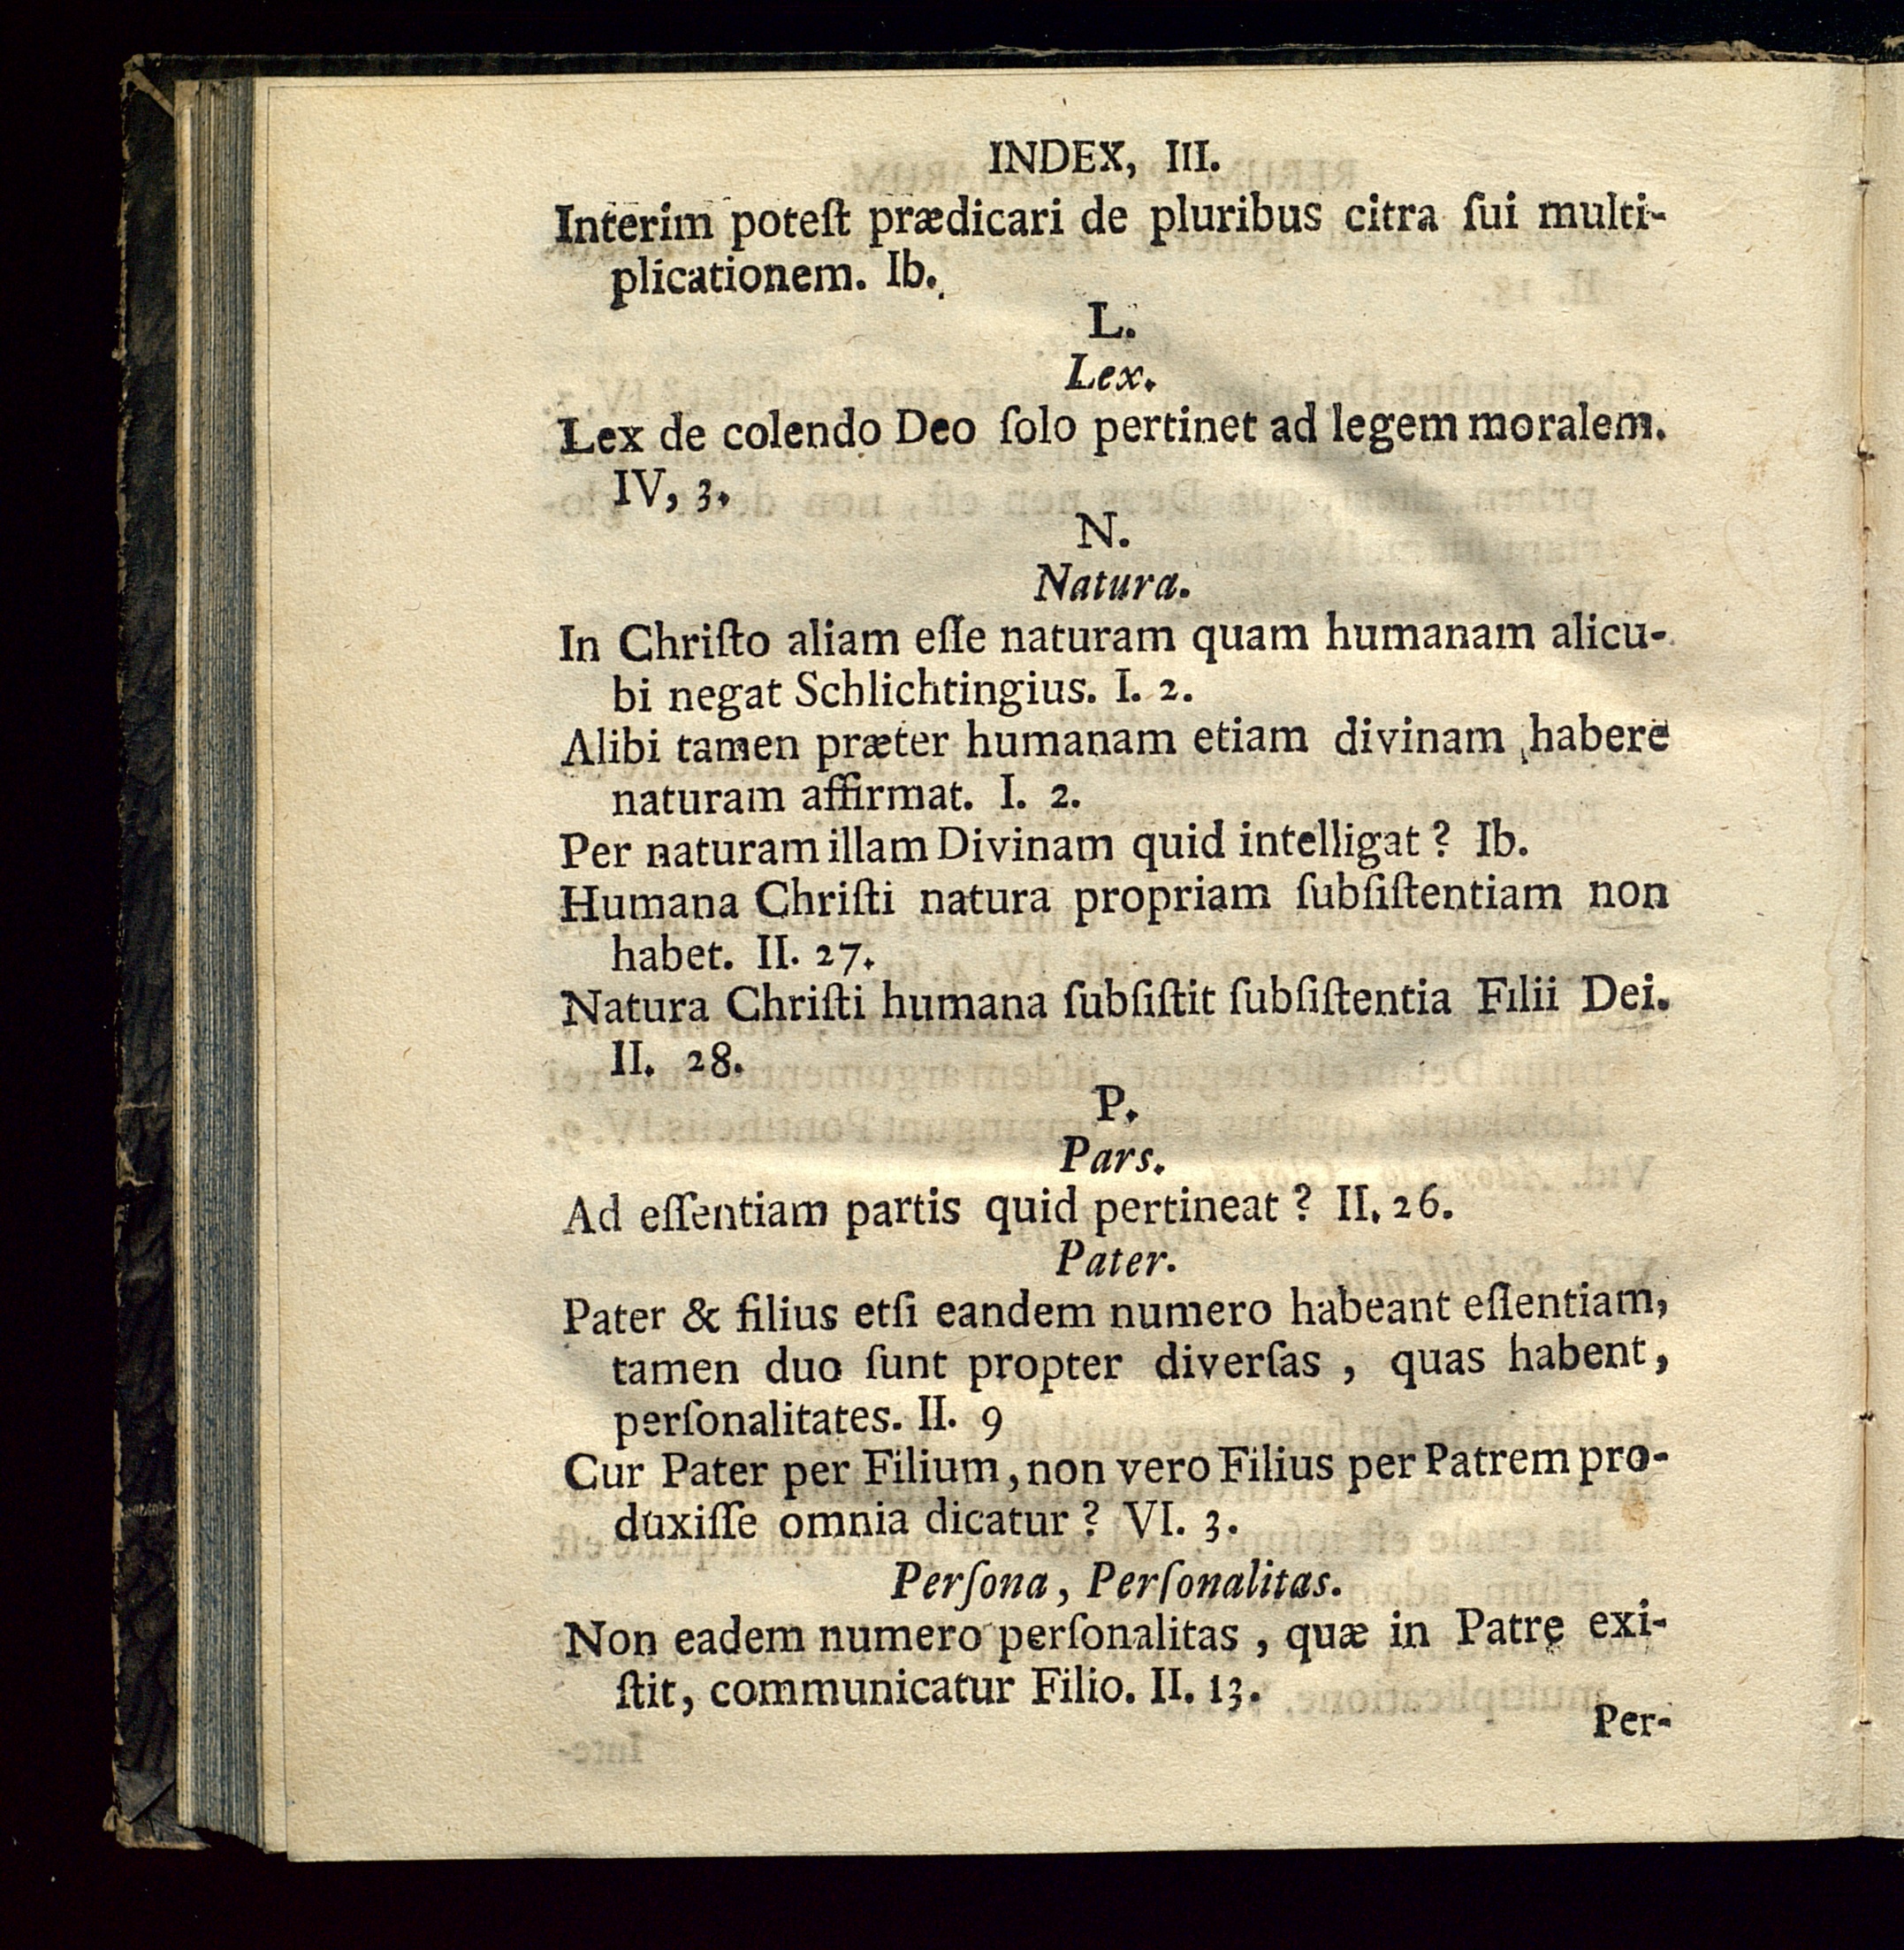 INDEX, III.
Interim poteſt prædicari de pluribus citra ſui multi-
plicationem. Ib.
L.
Lex.
Lex de colendo Deo ſolo pertinet ad legem moralem.
IV, 3.
N.
Natura.
In Chriſto aliam eſſe naturam quam humanam alicu-
bi negat Schlichtingius. I. 2.
Alibi tamen præter humanam etiam divinam habere
naturam affirmat. I. 2.
Per naturam illam Divinam quid intelligat? Ib.
Humana Chriſti natura propriam ſubſiſtentiam non
habet. II. 27.
Natura Chriſti humana ſubſiſtit ſubſiſtentia Filii Dei.
II. 28.
P.
Pars.
Ad eſſentiam partis quid pertineat? II. 26.
Pater.
Pater & filius etſi eandem numero habeant eſſentiam,
tamen duo ſunt propter diverſas, quas habent,
perſonalitates. II. 9
Cur Pater per Filium, non vero Filius per Patrem pro-
duxiſſe omnia dicatur? VI. 3.
Perſona, Perſonalitas.
Non eadem numero perſonalitas, quæ in Patre exi-
ſtit, communicatur Filio. II. 13.
Per-